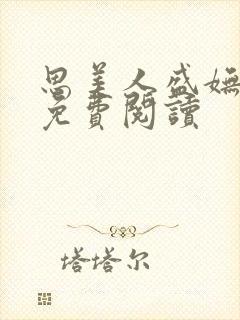 思美人盛嫵
免費閱讀
塔塔尔